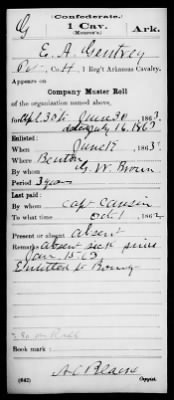 (Confederate.)
G 1 Cav. Ark.
(Monroe's)
E. A. Gentrey
Pvt, Co. H, 1 Reg't Arkansas Cavalry.
Appears on
Company Muster Roll
of the organization named above,
for Apl 30 to June 30, 1863.
dated July 16 1863
Enlisted:
When June 18, 1863.
Where Benton
By whom G. W. Brown
Period 3 years
Last paid:
By whom Capt
To what time Oct 1, 1862
Present or absent absent
Remarks: absent sick since
Jan. 15. 63
Entitled to Bounty
Book mark:
(642) Copyist.